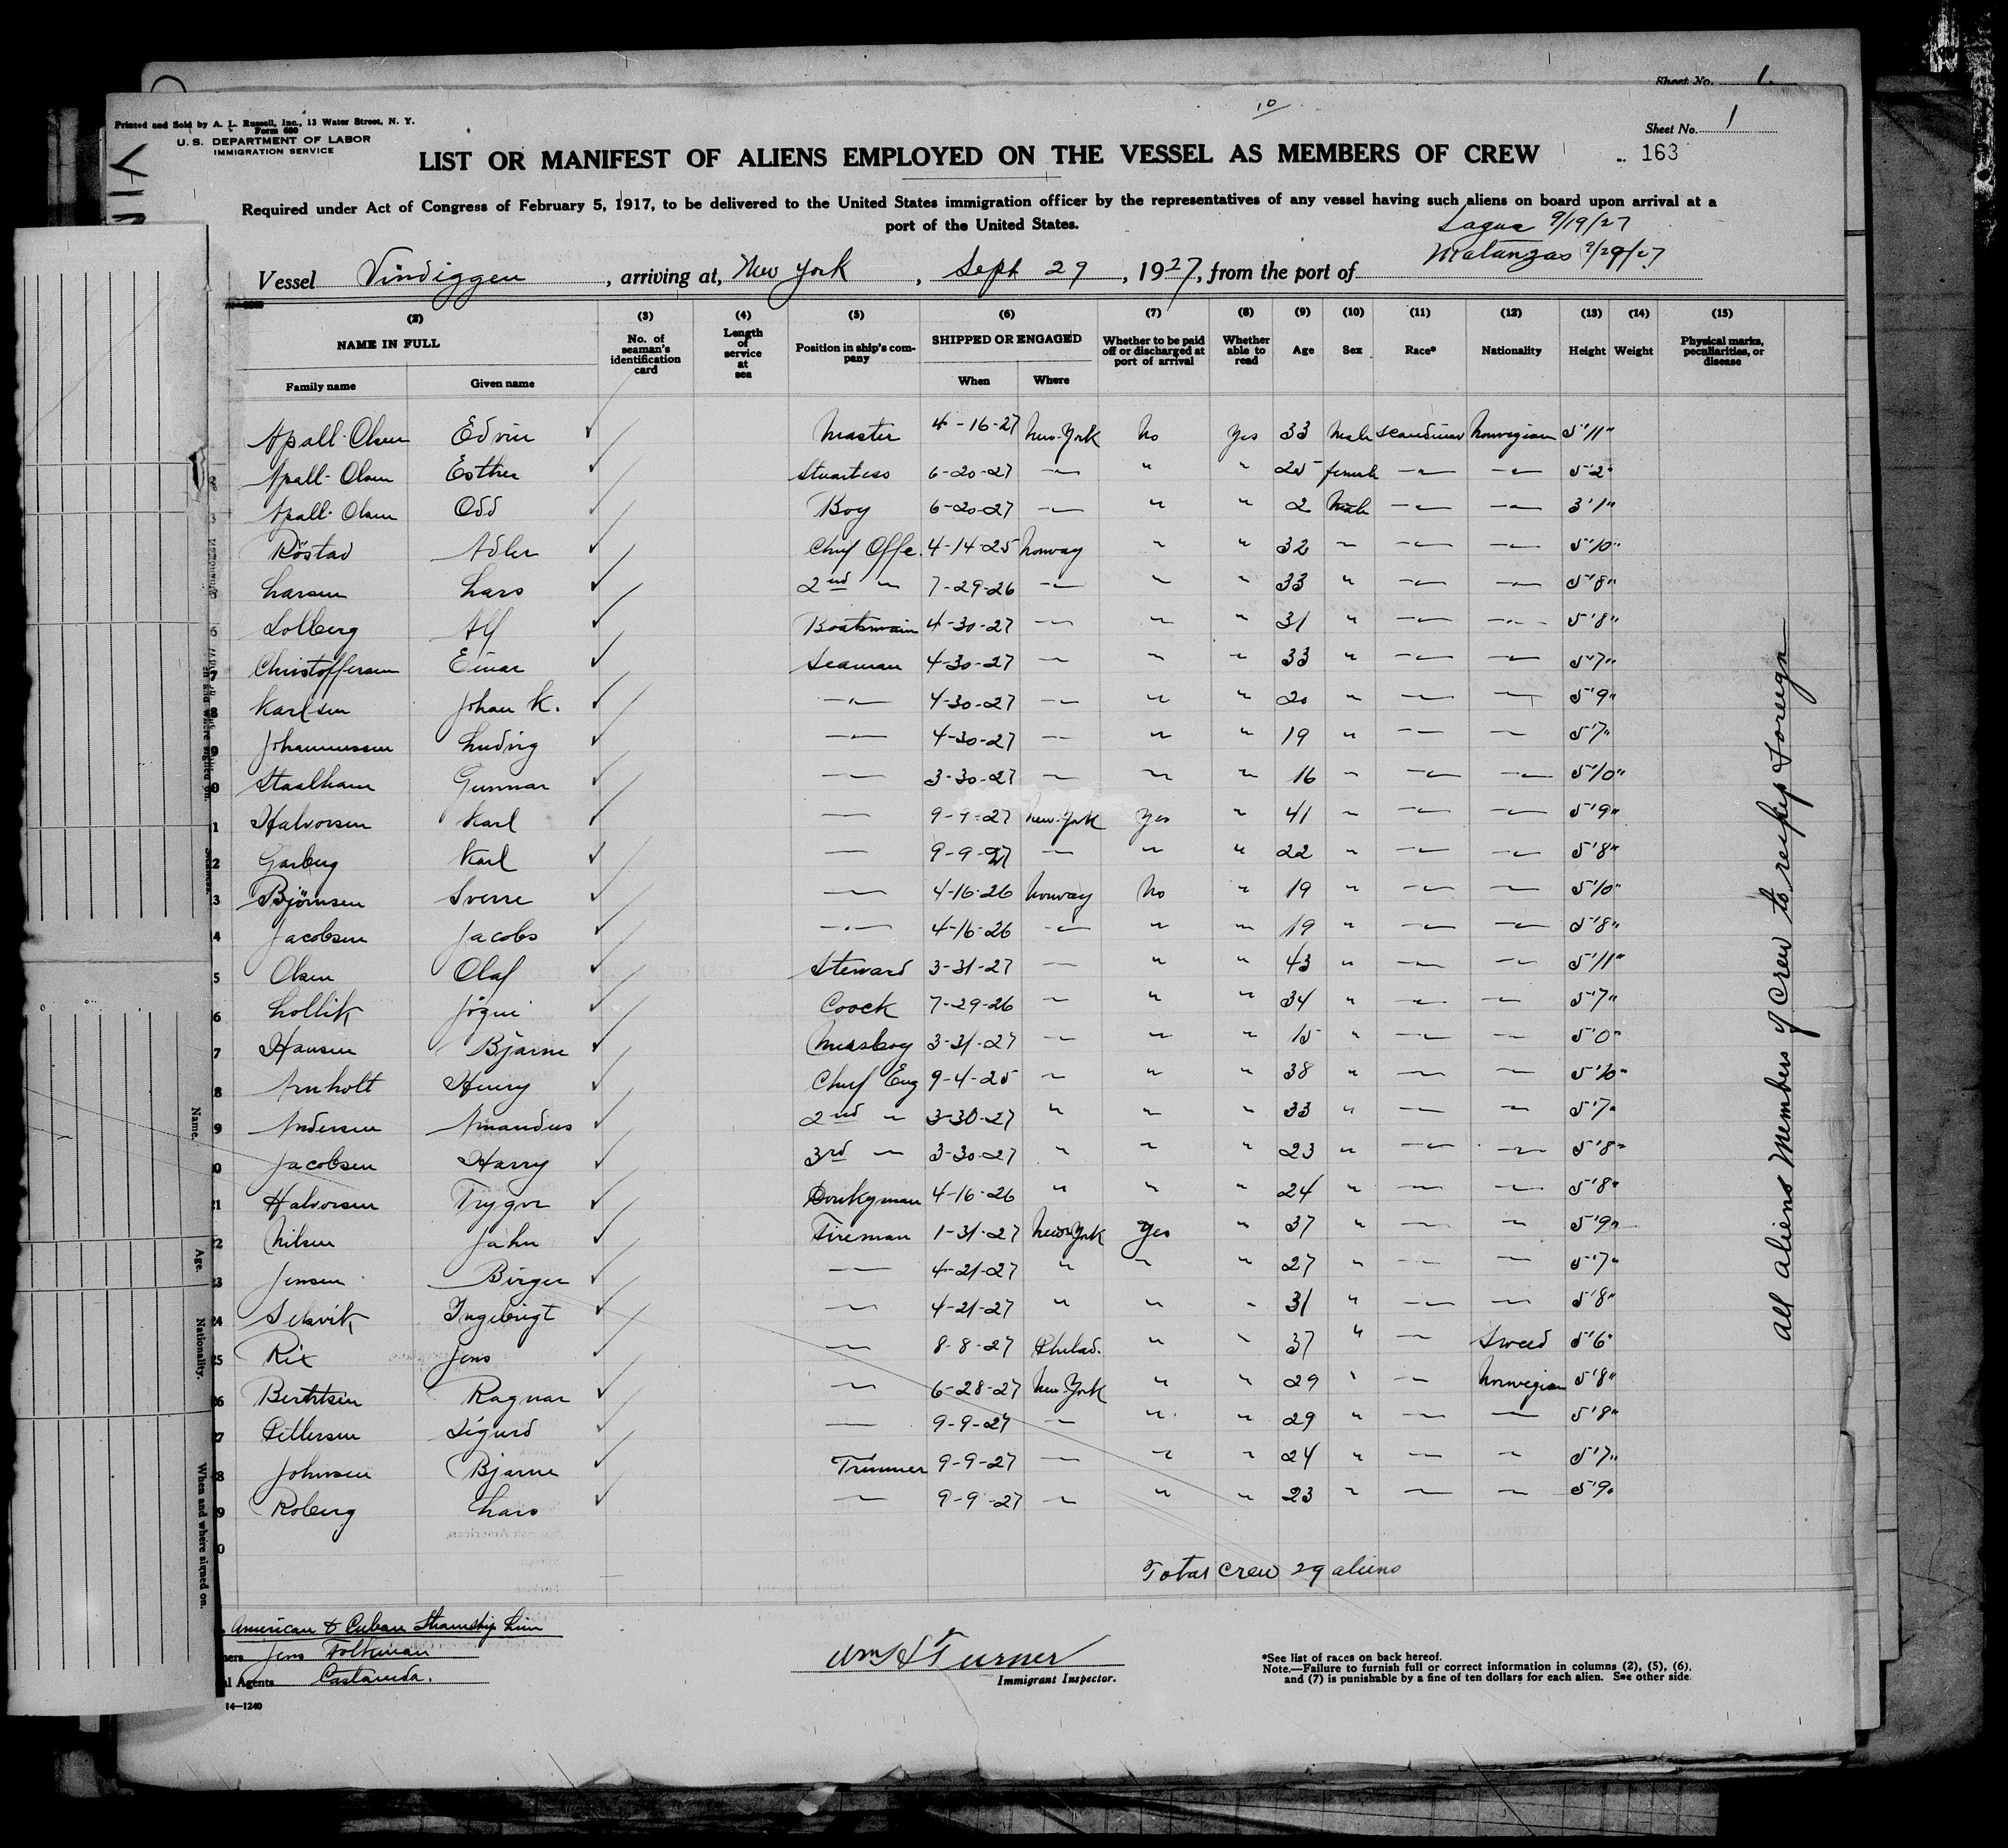 Sheet No. 1.
10
Printed and Sold by A. L. Russell, Inc., 13 Water Street, N. Y.
Form 680
U. S. DEPARTMENT OF LABOR
IMMIGRATION SERVICE
Sheet No. 1
163
LIST OR MANIFEST OF ALIENS EMPLOYED ON THE VESSEL AS MEMBERS OF CREW
Required under Act of Congress of February 5, 1917, to be delivered to the United States immigration officer by the representatives of any vessel having such aliens on board upon arrival at a
port of the United States.
Sagua 9/19/27
Matanzas 9/29/27
Vessel Vindeggen, arriving at, New York, Sept 29, 1927, from the port of
(2) (3) (4) (5) (6) (7) (8) (9) (10) (11) (12) (13) (14) (15)
NAME IN FULL No. of seaman's identification card Length of service at sea Position in ship's company SHIPPED OR ENGAGED Whether to be paid off or discharged at port of arrival Whether able to read Age Sex Race* Nationality Height Weight Physical marks, peculiarities, or disease
Family name Given name When Where
Apall-Olsen Edvin ✓ Master 4-16-27 New-York No Yes 33 Male Scandinav Norwegian 5'11"
2 Apall-Olsen Esther ✓ Stuartess 6-20-27 — " " 25 female — — 5'2"
3 Apall-Olsen Odd ✓ Boy 6-20-27 — " " 2 Male — — 3'1"
Röstad Adler ✓ Chief Offe. 4-14-25 Norway " " 32 " — — 5'10"
Larsen Lars ✓ 2nd " 7-29-26 — " " 33 " — — 5'8"
6 Solberg Alf ✓ Boatswain 4-30-27 — " " 31 " — — 5'8"
7 Christoffersen Einar ✓ Seaman 4-30-27 — " " 33 " — — 5'7"
8 Karlsen Johan K. ✓ — 4-30-27 — " " 20 " — — 5'9"
9 Johannessen Ludvig ✓ — 4-30-27 — " " 19 " — — 5'7"
0 Staalham Gunnar ✓ — 3-30-27 — " " 16 " — — 5'10"
1 Halvorsen Karl ✓ — 9-9-27 New-York Yes " 41 " — — 5'9"
2 Garberg Karl ✓ — 9-9-27 — " " 22 " — — 5'8"
3 Björnsen Sverre ✓ — 4-16-26 Norway No " 19 " — — 5'10"
4 Jacobsen Jacobs ✓ — 4-16-26 — " " 19 " — — 5'8"
5 Olsen Olaf ✓ Steward 3-31-27 — " " 43 " — — 5'11"
6 Lollik ✓ Coock 7-29-26 — " " 34 " — — 5'7"
7 Hansen Bjarne ✓ Messboy 3-31-27 — " " 15 " — — 5'0"
8 Arnholt Henry ✓ Chief Eng 9-4-25 — " " 38 " — — 5'10"
9 Andersen Amandus ✓ 2nd " 3-30-27 " " " 33 " — — 5'7"
0 Jacobsen Harry ✓ 3rd " 3-30-27 " " " 23 " — — 5'8"
1 Halvorsen Trygve ✓ Donkeyman 4-16-26 " " " 24 " — — 5'8"
2 Nilsen John ✓ Fireman 1-31-27 New York Yes " 37 " — — 5'9"
3 Jensen Birger ✓ — 4-21-27 " " " 27 " — — 5'7"
24 Selsvik Ingebrigt ✓ — 4-21-27 " " " 31 " — — 5'8"
25 Rix Jens ✓ — 8-8-27 Philad. " " 37 " — Sweed 5'6"
6 Berntsen Ragnar ✓ — 6-28-27 New-York " " 29 " — Norwegian 5'8"
7 Pettersen Sigurd ✓ — 9-9-27 — " " 29 " — — 5'8"
8 Johnsen Bjarne ✓ Trimmer 9-9-27 — " " 24 " — — 5'7"
9 Roberg Lars ✓ — 9-9-27 — " " 23 " — — 5'9"
0
Total crew 29 aliens
All aliens Members of Crew to reship foreign
American & Cuban Steamship Line
Jens Folkman
al Agents Castaneda.
14—1240
Wm S Turner
Immigrant Inspector.
*See list of races on back hereof.
Note.—Failure to furnish full or correct information in columns (2), (5), (6),
and (7) is punishable by a fine of ten dollars for each alien. See other side.
Name.
Age.
Nationality.
When and where signed on.